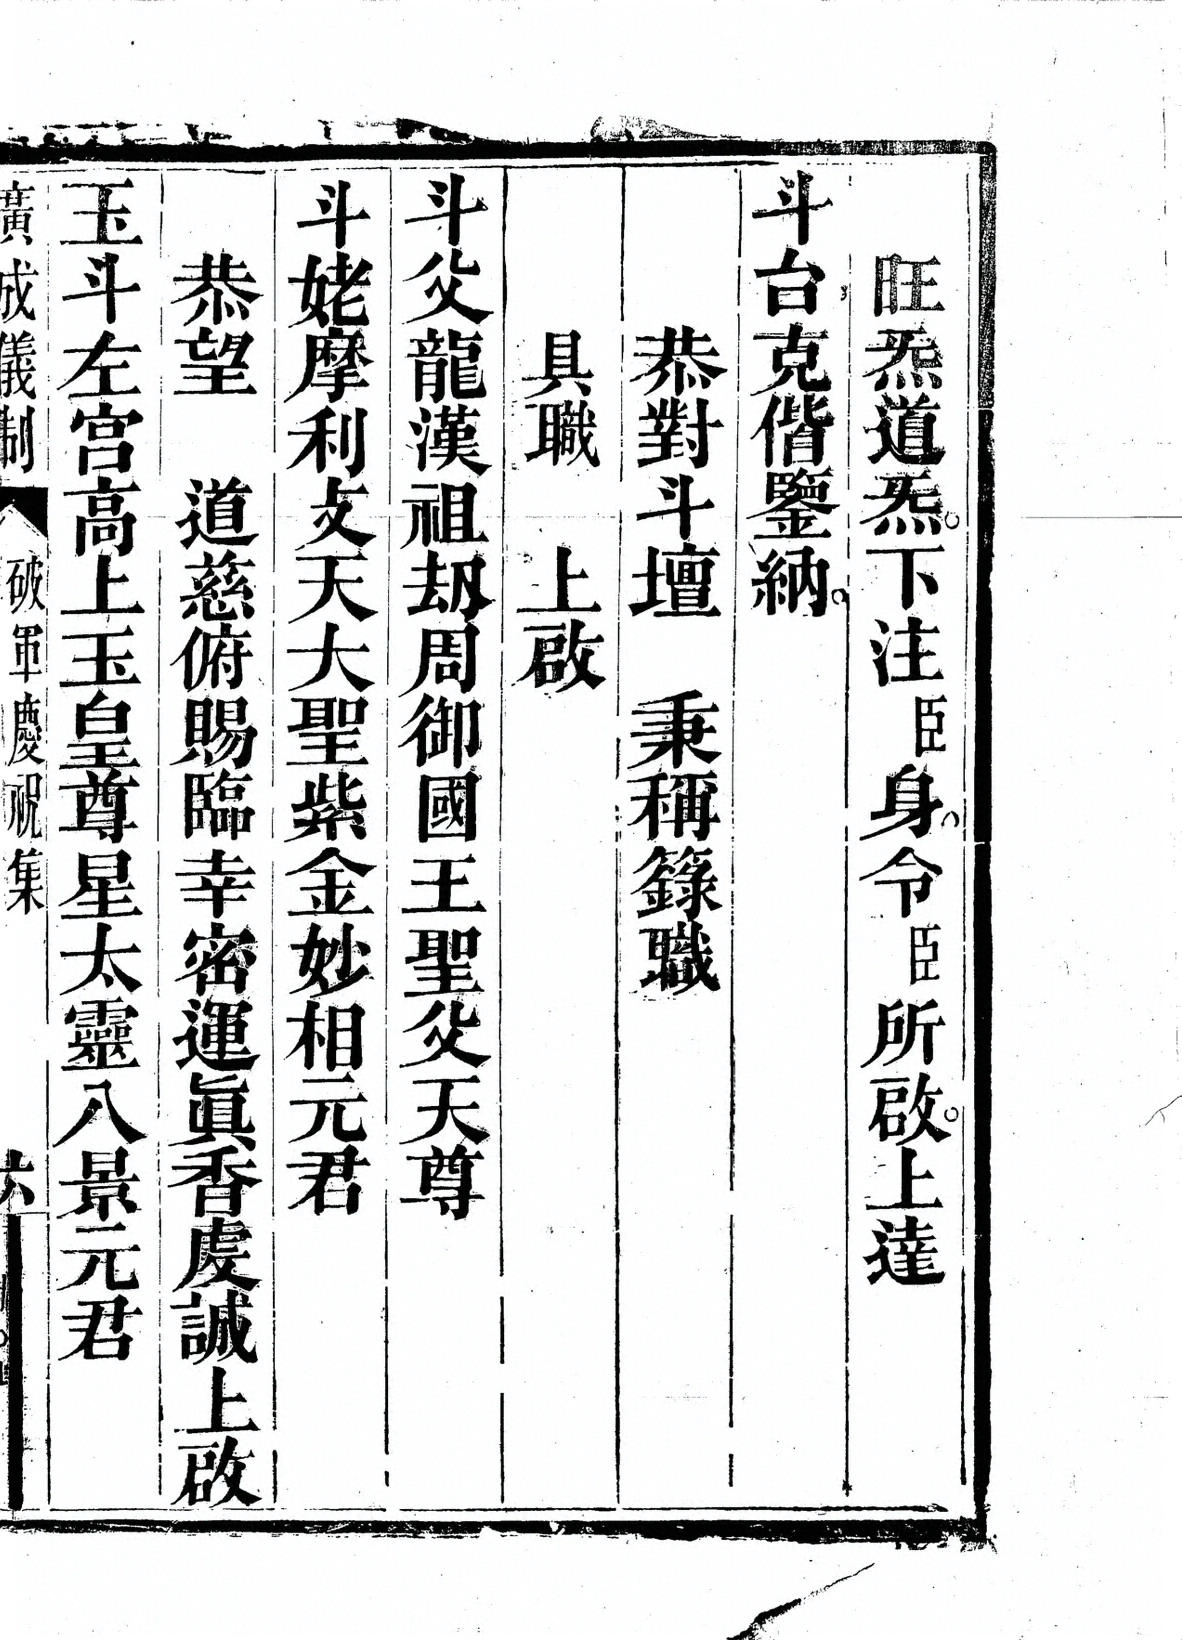 旺炁道炁。下注臣身。令臣所啟。上達
斗台克偕鑒納。
恭對斗壇 秉稱籙職
具職 上啟
斗父龍漢祖劫周御國王聖父天尊
斗姥摩利攴天大聖紫金妙相元君
恭望 道慈俯賜臨幸密運眞香虔誠上啟
玉斗左宮高上玉皇尊星太靈八景元君
廣成儀制 破軍慶祝集 六